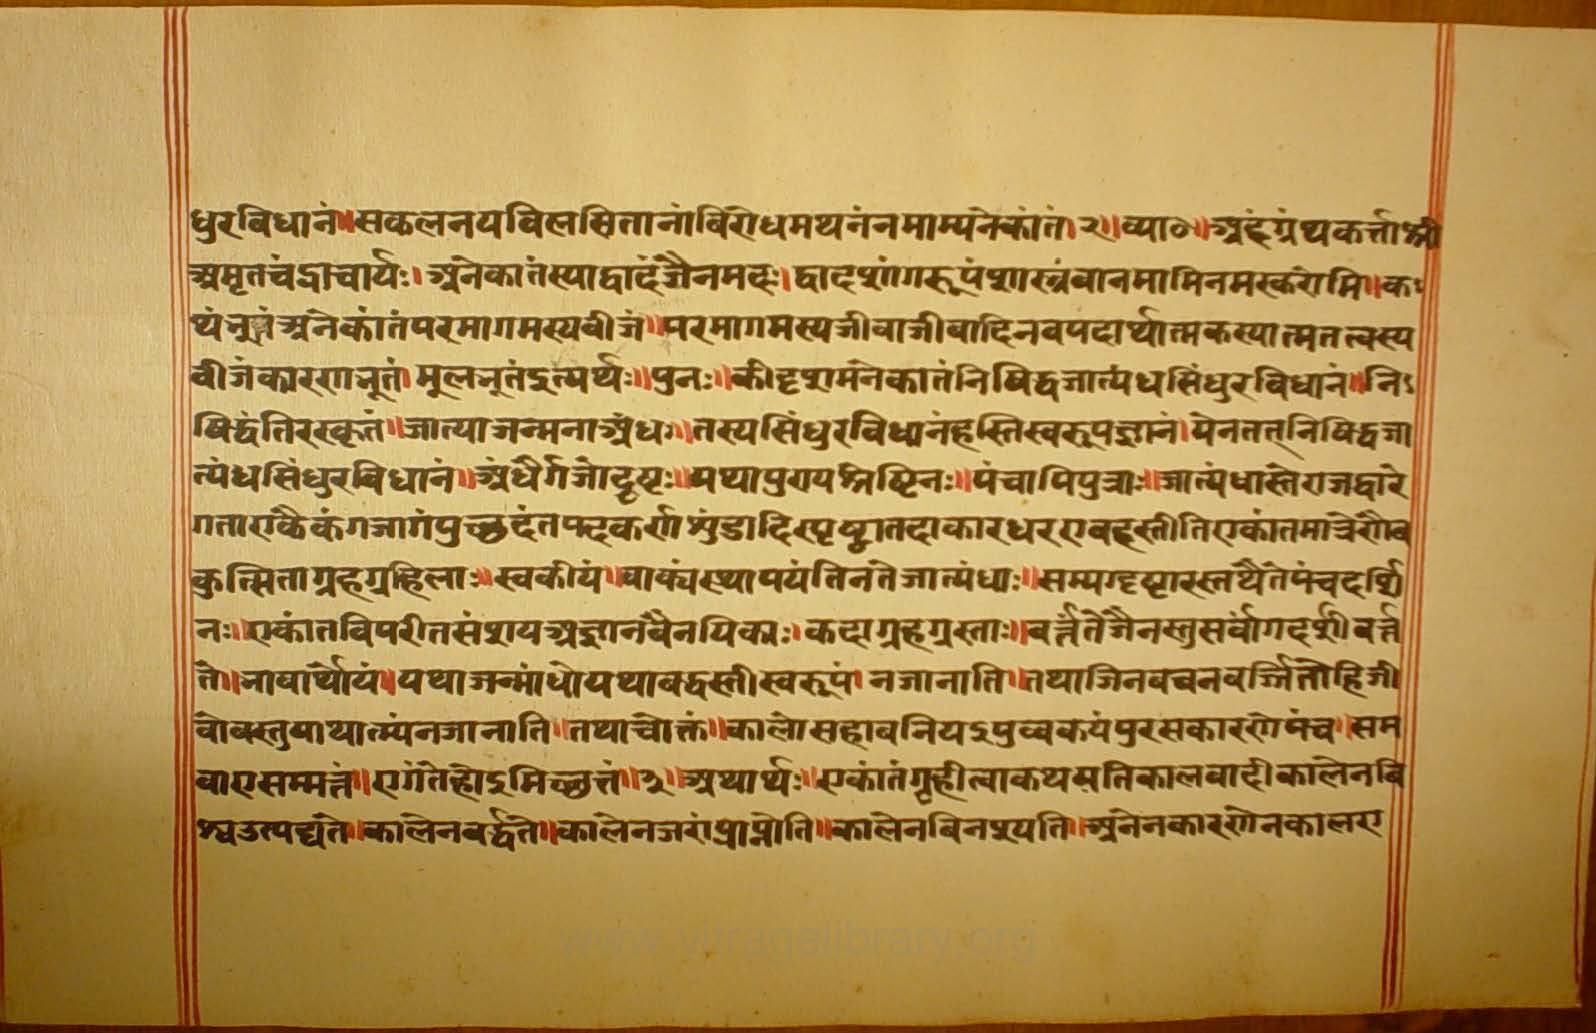 धुरविधानं॥सकलनयविलसितानांविरोधमथनंनमाम्यनेकांतं।२॥व्या०॥अहंग्रंथकर्त्ताश्री
अमृतचंद्राचार्यः।अनेकातंस्याद्वादंजैनमदः।द्वादशांगरूपंशास्त्रंवानमामिनमस्करोमि॥क
थंभूतंअनेकांतंपरमागमस्यवीजं॥परमागमस्यजीवाजीवादिनवपदार्थात्मकस्यात्मतत्वस्य
वीजंकारणभूतं।मूलभूतंइत्यर्थः॥पुनः॥कीदृशमनेकातंनिषिद्धजात्यंधसिंधुरविधानं॥निऽ
षिद्धंतिरस्कृतं॥जात्याजन्मनाअंध॥तस्यसिंधुरविधानंहस्तिस्वरूपज्ञानं।येनतत्निषिद्धजा
त्यंधसिंधुरविधानं॥अंधैर्गजोदृष्टः॥यथापुरायश्रेष्टिनः॥पंचापिपुत्राः॥जात्यंधास्तेराजद्वारे
गताएकैकंगजागंपुच्छदंतपदकर्णशुंडादिस्पृष्ट्वातदाकारधरएवहस्तीतिएकांतमात्रेणैव
कुत्सिताग्रहग्रहिलाः॥स्वकीयं॥वाक्यंस्थापयंतिनतेजात्यंधाः॥सम्यग्दृष्टारस्तथैतेपंचदर्शि
नः॥एकांतविपरीतसंशयअज्ञानवैनयिकाः।कदाग्रहग्रस्ताः॥वर्त्ततेजैनस्तुसर्वांगदर्शीवर्त्त
ते॥भावार्थोयं॥यथाजन्मांधोयथावद्धस्तीस्वरूपं।नजानाति॥तथाजिनवचनवर्जितोहिजी
वोवस्तुयाथात्म्यंनजानाति॥तथाचोक्तं॥कालोसहावनियइपुव्वकयंपुरसकारणेपंच॥सम
वाएसम्मत्तं॥एगंतेहोइमिच्छत्तं॥३॥अथार्थः॥एकांतंगृहीत्वाकथयतिकालवादीकालेनवि
श्वउत्पद्यते॥कालेनवर्द्धते॥कालेनजरांप्राप्नोति॥कालेनविनश्यति॥अनेनकारणेनकालए
www.vitragelibrary.org